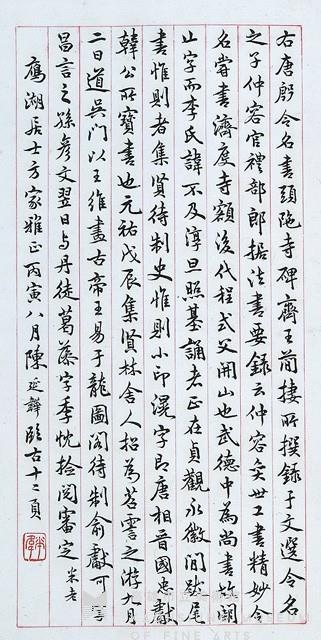 右唐殷令名書頭陁寺碑齊王簡捿所撰錄于文選令名
之子仲容官禮部郎據法書要錄云仲容奕世工書精妙令
名嘗書濟度寺額後代程式父開山也武德中為尚書竹闕
止字而李氏諱不及淳旦照基誦者正在貞觀永徽間跋尾
書惟則者集賢待制史惟則小印滉字即唐相晉國忠獻
韓公所寶書也元祐戊辰集賢林舍人招為苕霅之游九月
二日道吳門以王維畫古帝王易于龍圖閣待制俞獻可字
昌言之孫彥文翌日与丹徒葛藻字季忱拾閱審定 米老
鷹湖居士方家雅正丙寅八月陳延韡臨古十二頁
OF FINE ARTS